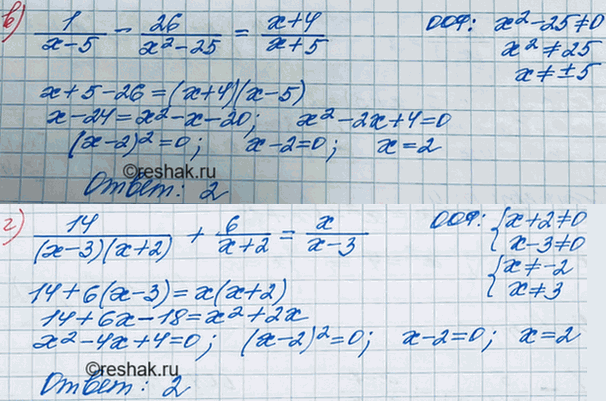 в) 1/(x-5) - 26/(x²-25) = (x+4)/(x+5) ООУ: x²-25≠0
x²≠25
x≠±5
x+5-26=(x+4)(x-5)
x-24=x²-x-20; x²-2x+4=0
(x-2)²=0; x-2=0; x=2
©reshak.ru
Ответ: 2
г) 14/((x-3)(x+2)) + 6/(x+2) = x/(x-3) ООУ: {x+2≠0
x-3≠0
{x≠-2
x≠3
14+6(x-3)=x(x+2)
14+6x-18=x²+2x
x²-4x+4=0; (x-2)²=0; x-2=0; x=2
©reshak.ru
Ответ: 2